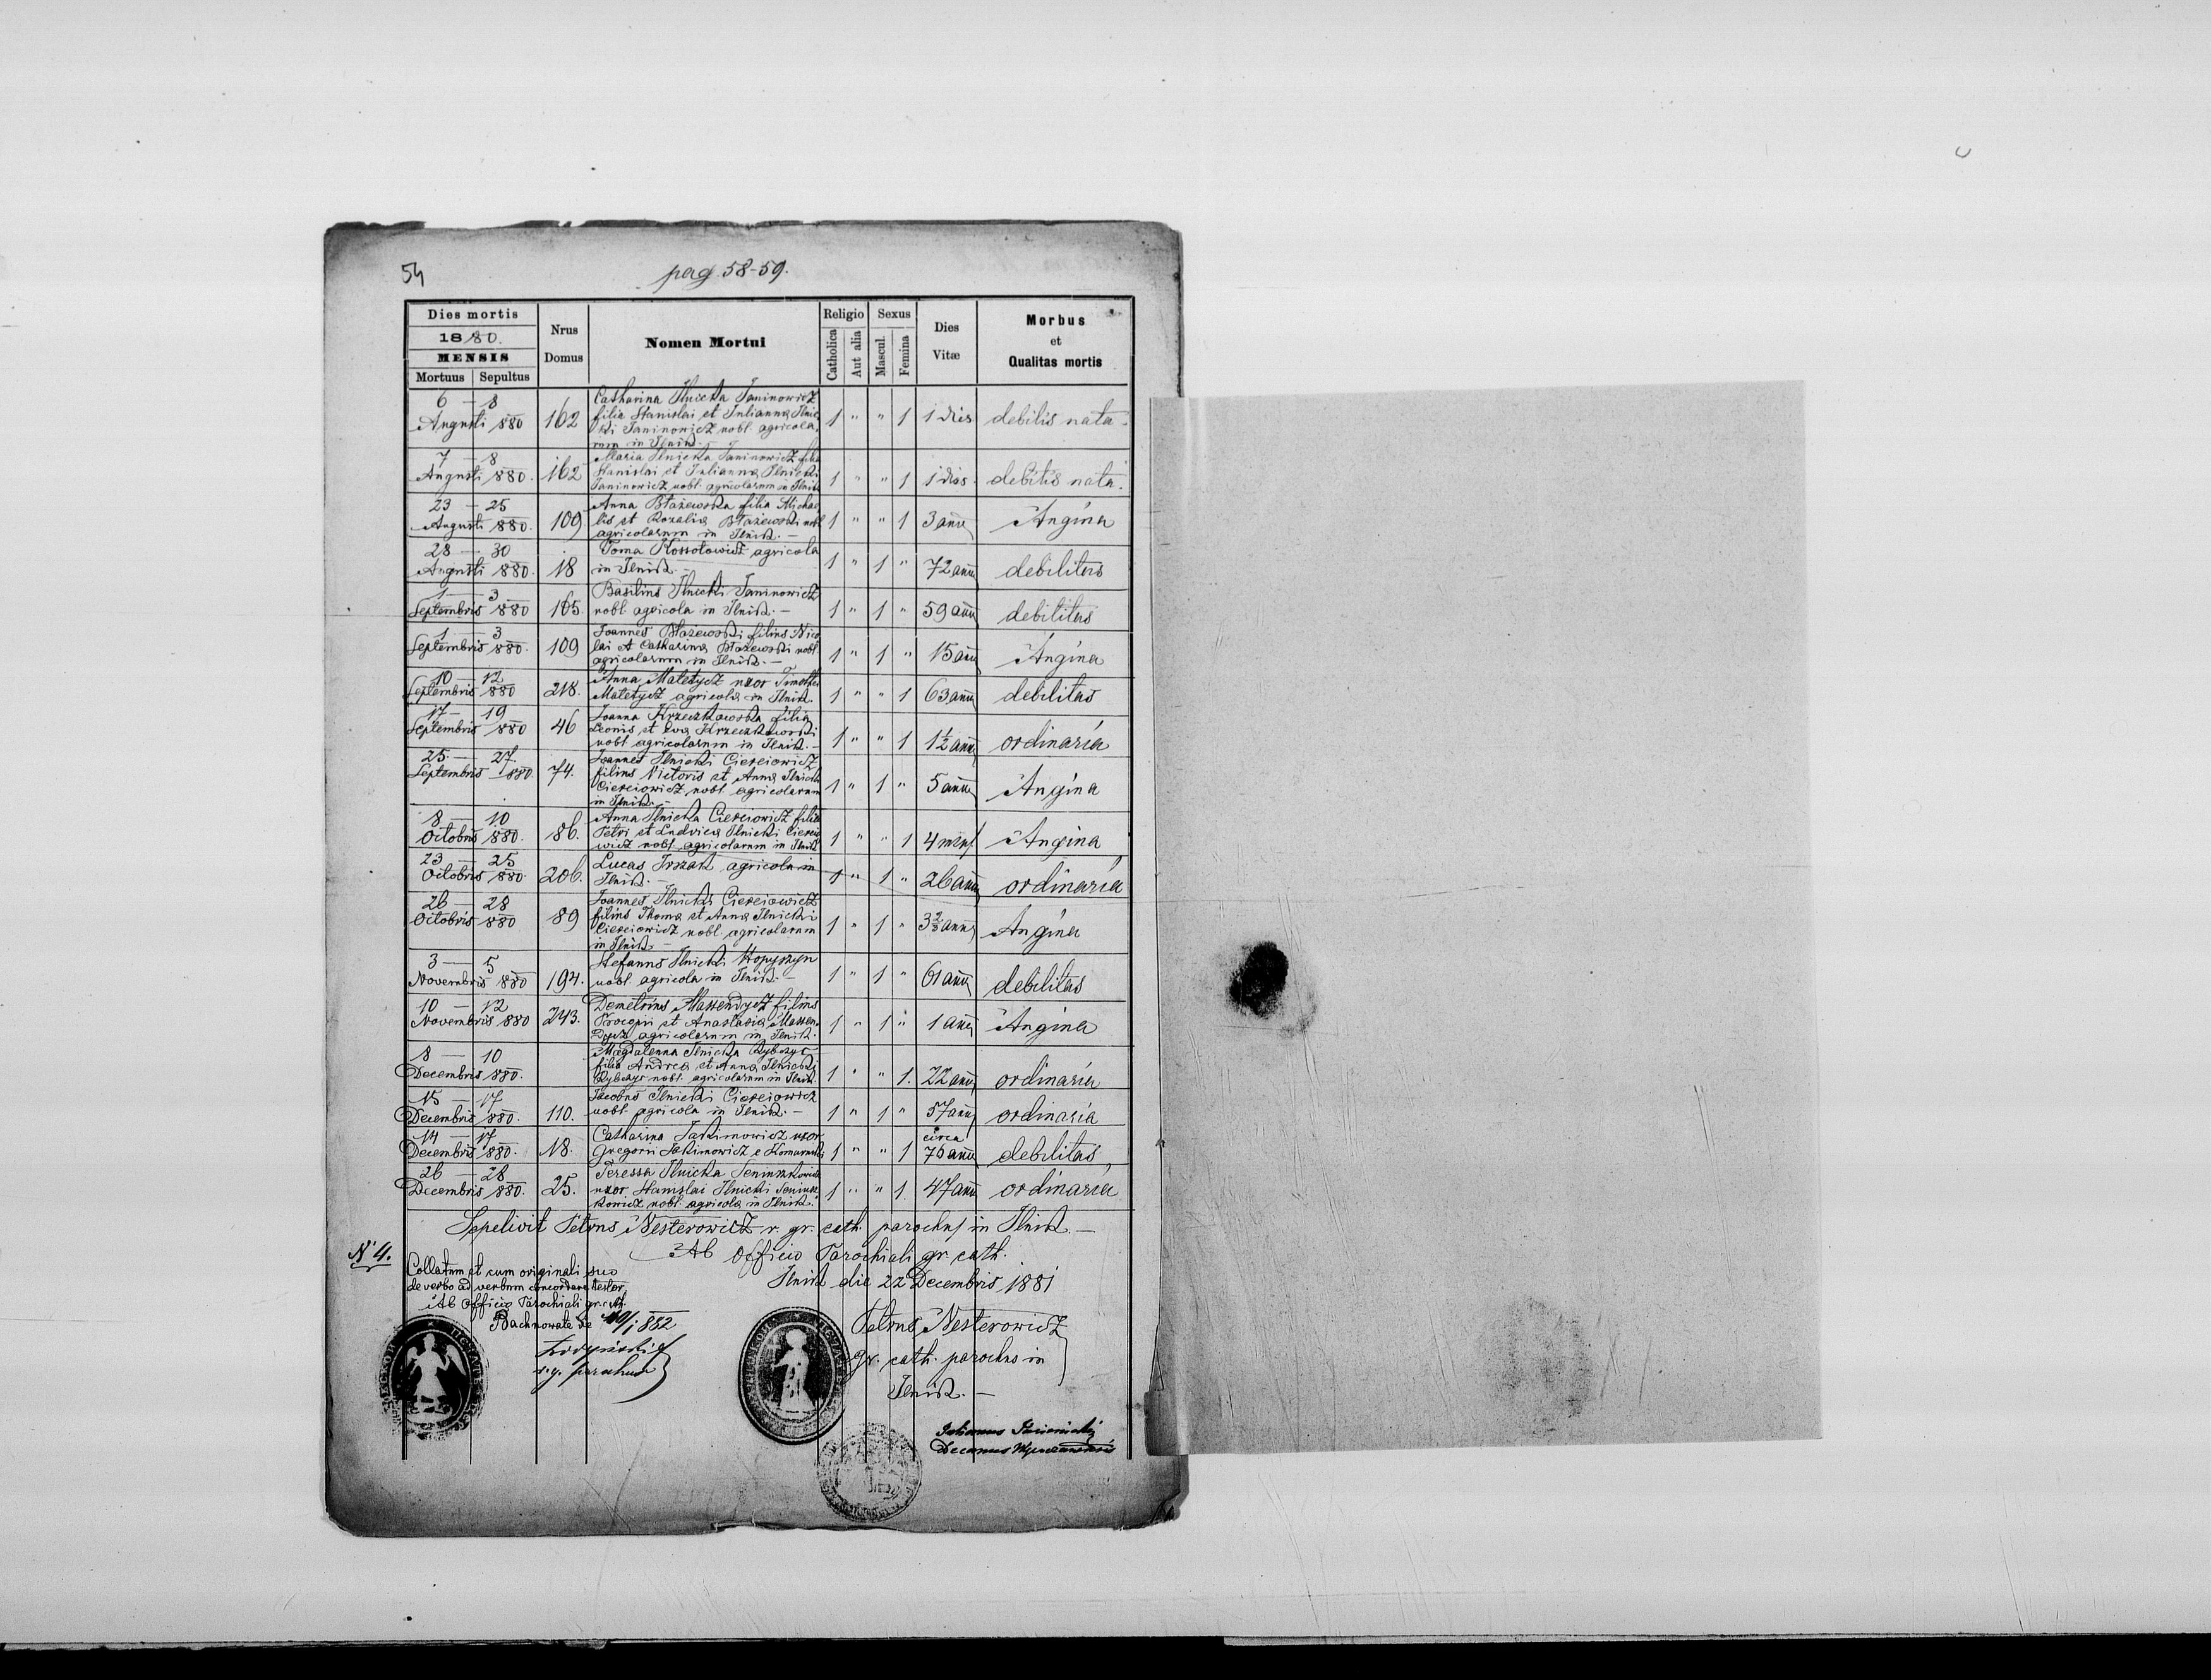 54
pag. 58-59.
Dies mortis
1880.
MENSIS
Mortuus Sepultus
Nrus Domus
Nomen Mortui
Religio
Catholica Aut alia
Sexus
Mascul. Femina
Dies Vitæ
Morbus et Qualitas mortis
6 — 8 Augusti 880 162 Catharina Ilnicka Janinowicz
filia Stanislai et Julianna Ilnic-
ki Janinowicz nobl. agricola-
rum in Ilnik. — 1 " " 1 1 dies debilis nata.
7 — 8 Augusti 880. 162 Maria Ilnicka Janinowicz filia
Stanislai et Julianna Ilnicki
Janinowicz nobl. agricolarum in Ilnik 1 " " 1 1 dies. debilis nata.
23 — 25 Augusti 880. 109 Anna Błażewska filia Micha-
lis et Rozalia Błażewski nobl
agricolarum in Ilnik. — 1 " " 1 3 anni Angina
28 — 30 Augusti 880. 18 Toma Kossołowicz agricola
in Ilnik. — 1 " 1 " 72 anni debilitas
1 — 3 Septembris 880 165. Basilius Ilnicki Janinowicz
nobl. agricola in Ilnik. — 1 " 1 " 59 anni debilitas
1 — 3 Septembris 880. 109 Joannes Błażewski filius Nico
lai et Catharina Błażewski nobl.
agricolarum in Ilnik. — 1 " 1 " 15 anni Angina
10 — 12 Septembris 880 218. Anna Matetycz uxor Timothei
Matetycz agricola in Ilnik. 1 " " 1 63 anni debilitas
17 — 19 Septembris 880 46 Joanna Krzeczkowska filia
Leonis et Eva Krzeczkowski
nobl agricolarum in Ilnik. — 1 " " 1 1½ anni ordinaria
25. — 27. Septembris 880. 74. Joannes Ilnicki Cieściowicz
filius Victoris et Anna Ilnicki
Cieściowicz nobl. agricolarum
in Ilnik. — 1 " 1 " 5 anni Angina
8 — 10 Octobris 880. 86. Anna Ilnicka Cieściowicz filia
Petri et Ludvica Ilnicki Cieścio
wicz nobl. agricolarum in Ilnik 1 " " 1 4 mens Angina
23 — 25 Octobris 880. 206. Lucas Irszak agricola in
Ilnik. — 1 " 1 " 26 anni ordinaria
26 — 28 Octobris 880 89 Joannes Ilnicki Cieściowicz
filius Thoma et Anna Ilnicki
Cieściowicz nobl. agricolarum
in Ilnik. — 1 " 1 " anni Angina
3 — 5 Novembris 880 194. Stefanus Ilnicki Hopyszyn
nobl. agricola in Ilnik. — 1 " 1 " 61 anni debilitas
10 — 12 Novembris 880 243. Demetrius Massendycz filius
Procopii et Anastasia Massen-
dycz agricolarum in Ilnik. 1 " 1 " 1 anni Angina
8 — 10 Decembris 880. Magdalenna Ilnicka Rybczyc
filia Andrea et Anna Ilnicki
Rybczyc nobl. agricolarum in Ilnik. 1 " " 1. 22 anni ordinaria
15 — 17 Decembris 880. 110. Jacobus Ilnicki Cieściowicz
nobl. agricola in Ilnik. — 1 " 1 " 57 anni ordinaria
14 — 17 Decembris 880. 18. Catharina Jakimowicz uxor
Gregorii Jakimowicz e Komarniki 1 " " 1 circa 75 anni debilitas
26 — 28 Decembris 880. 25. Teressa Ilnicka
uxor Stanislai Ilnicki
nobl. agricola in Ilnik. 1 " " 1. 47 anni ordinaria
Sepelivit Petrus Nesterowicz r. gr. cath. parochus in Ilnik. —
Ab Officio Parochiali gr. cath.
Ilnik die 22 Decembris 1881
Petrus Nesterowicz
gr. cath. parochus in
Ilnik. —
Nº 4.
Collatum et cum originali suo
de verbo ad verbum concordare testor
Ab Officio Parochiali gr. cath.
Bachnowate 10/1 882
r. g. parochus
Decanus